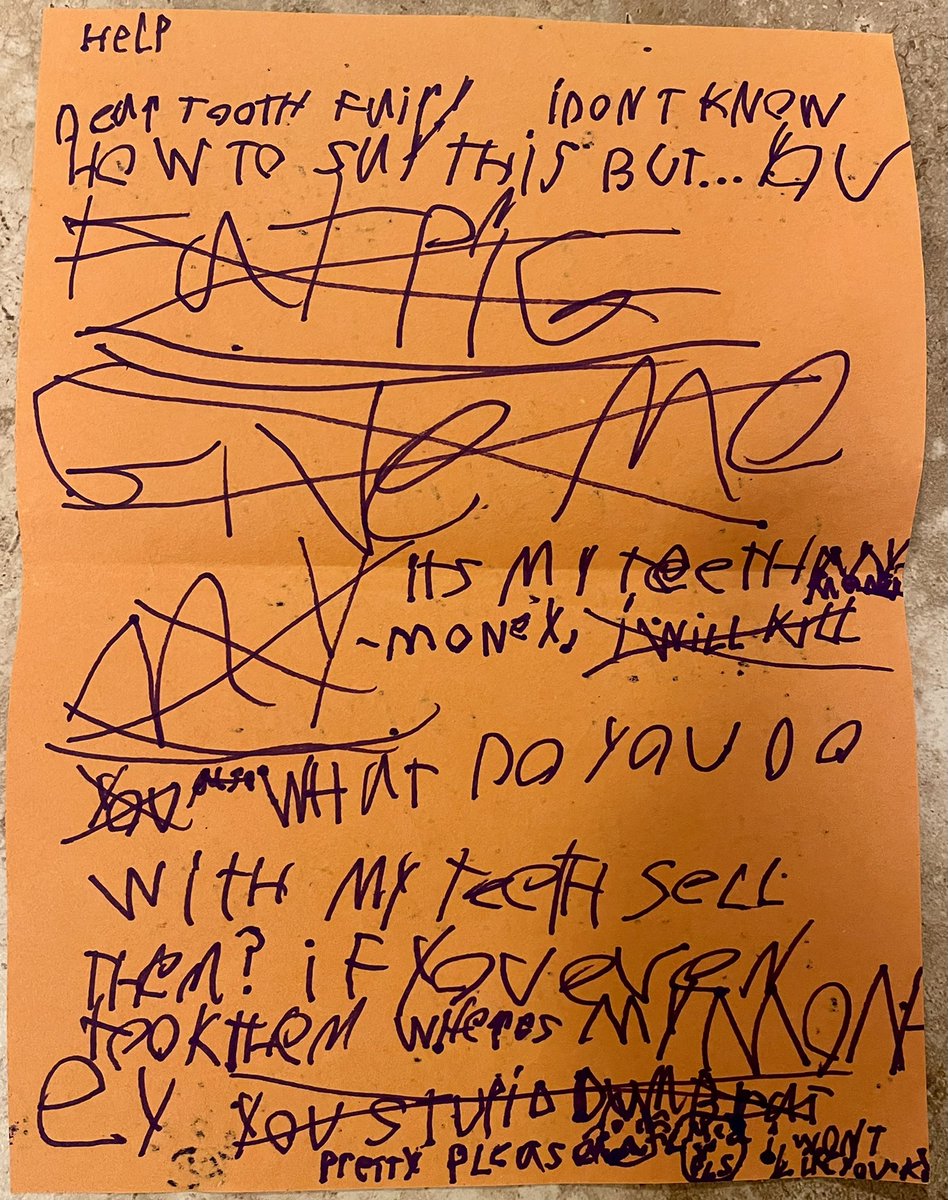 HELP
Dear TOOTH FAIRY I DONT KNOW
HOW TO SAY THIS BUT... YOU
FAT PIG
GIVE ME
MY
ITS MY TEETH
-MONEY, I WILL KILL
YOU WHAT DO YOU DO
WITH MY TEETH SELL
THEM? iF YOU EVEN
TOOK THEM WHERES MY MON-
EY YOU STUPID DUMB
PRETTY PLEAS PLS I WONT